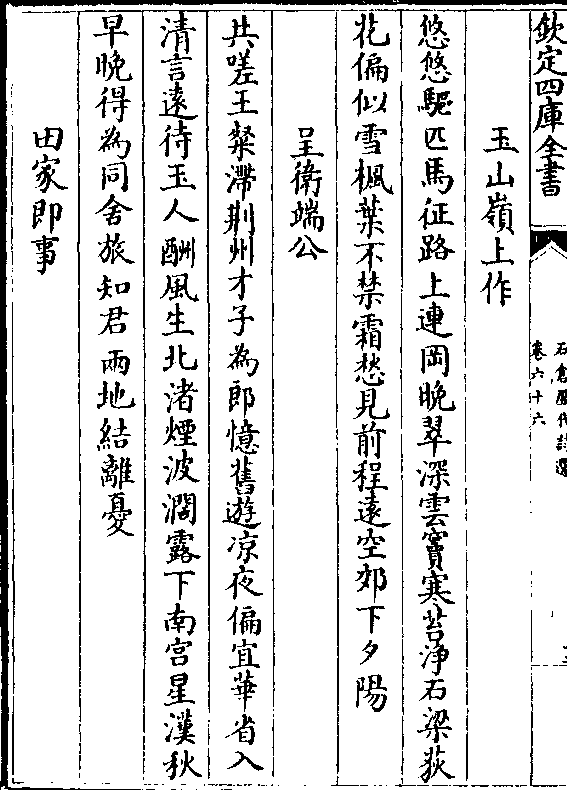 欽定四庫全書
石倉歷代詩選
卷六十六
玉山嶺上作
悠悠驅匹馬征路上連岡晚翠深雲竇寒苔浄石梁荻
花偏似雪楓葉不禁霜愁見前程遠空郊下夕陽
呈衛端公
共嗟王粲滯荆州才子為郎憶舊遊凉夜偏宜華省入
清言遠待玉人酬風生北渚煙波濶露下南宫星漢秋
早晚得為同舍旅知君兩地結離憂
田家即事